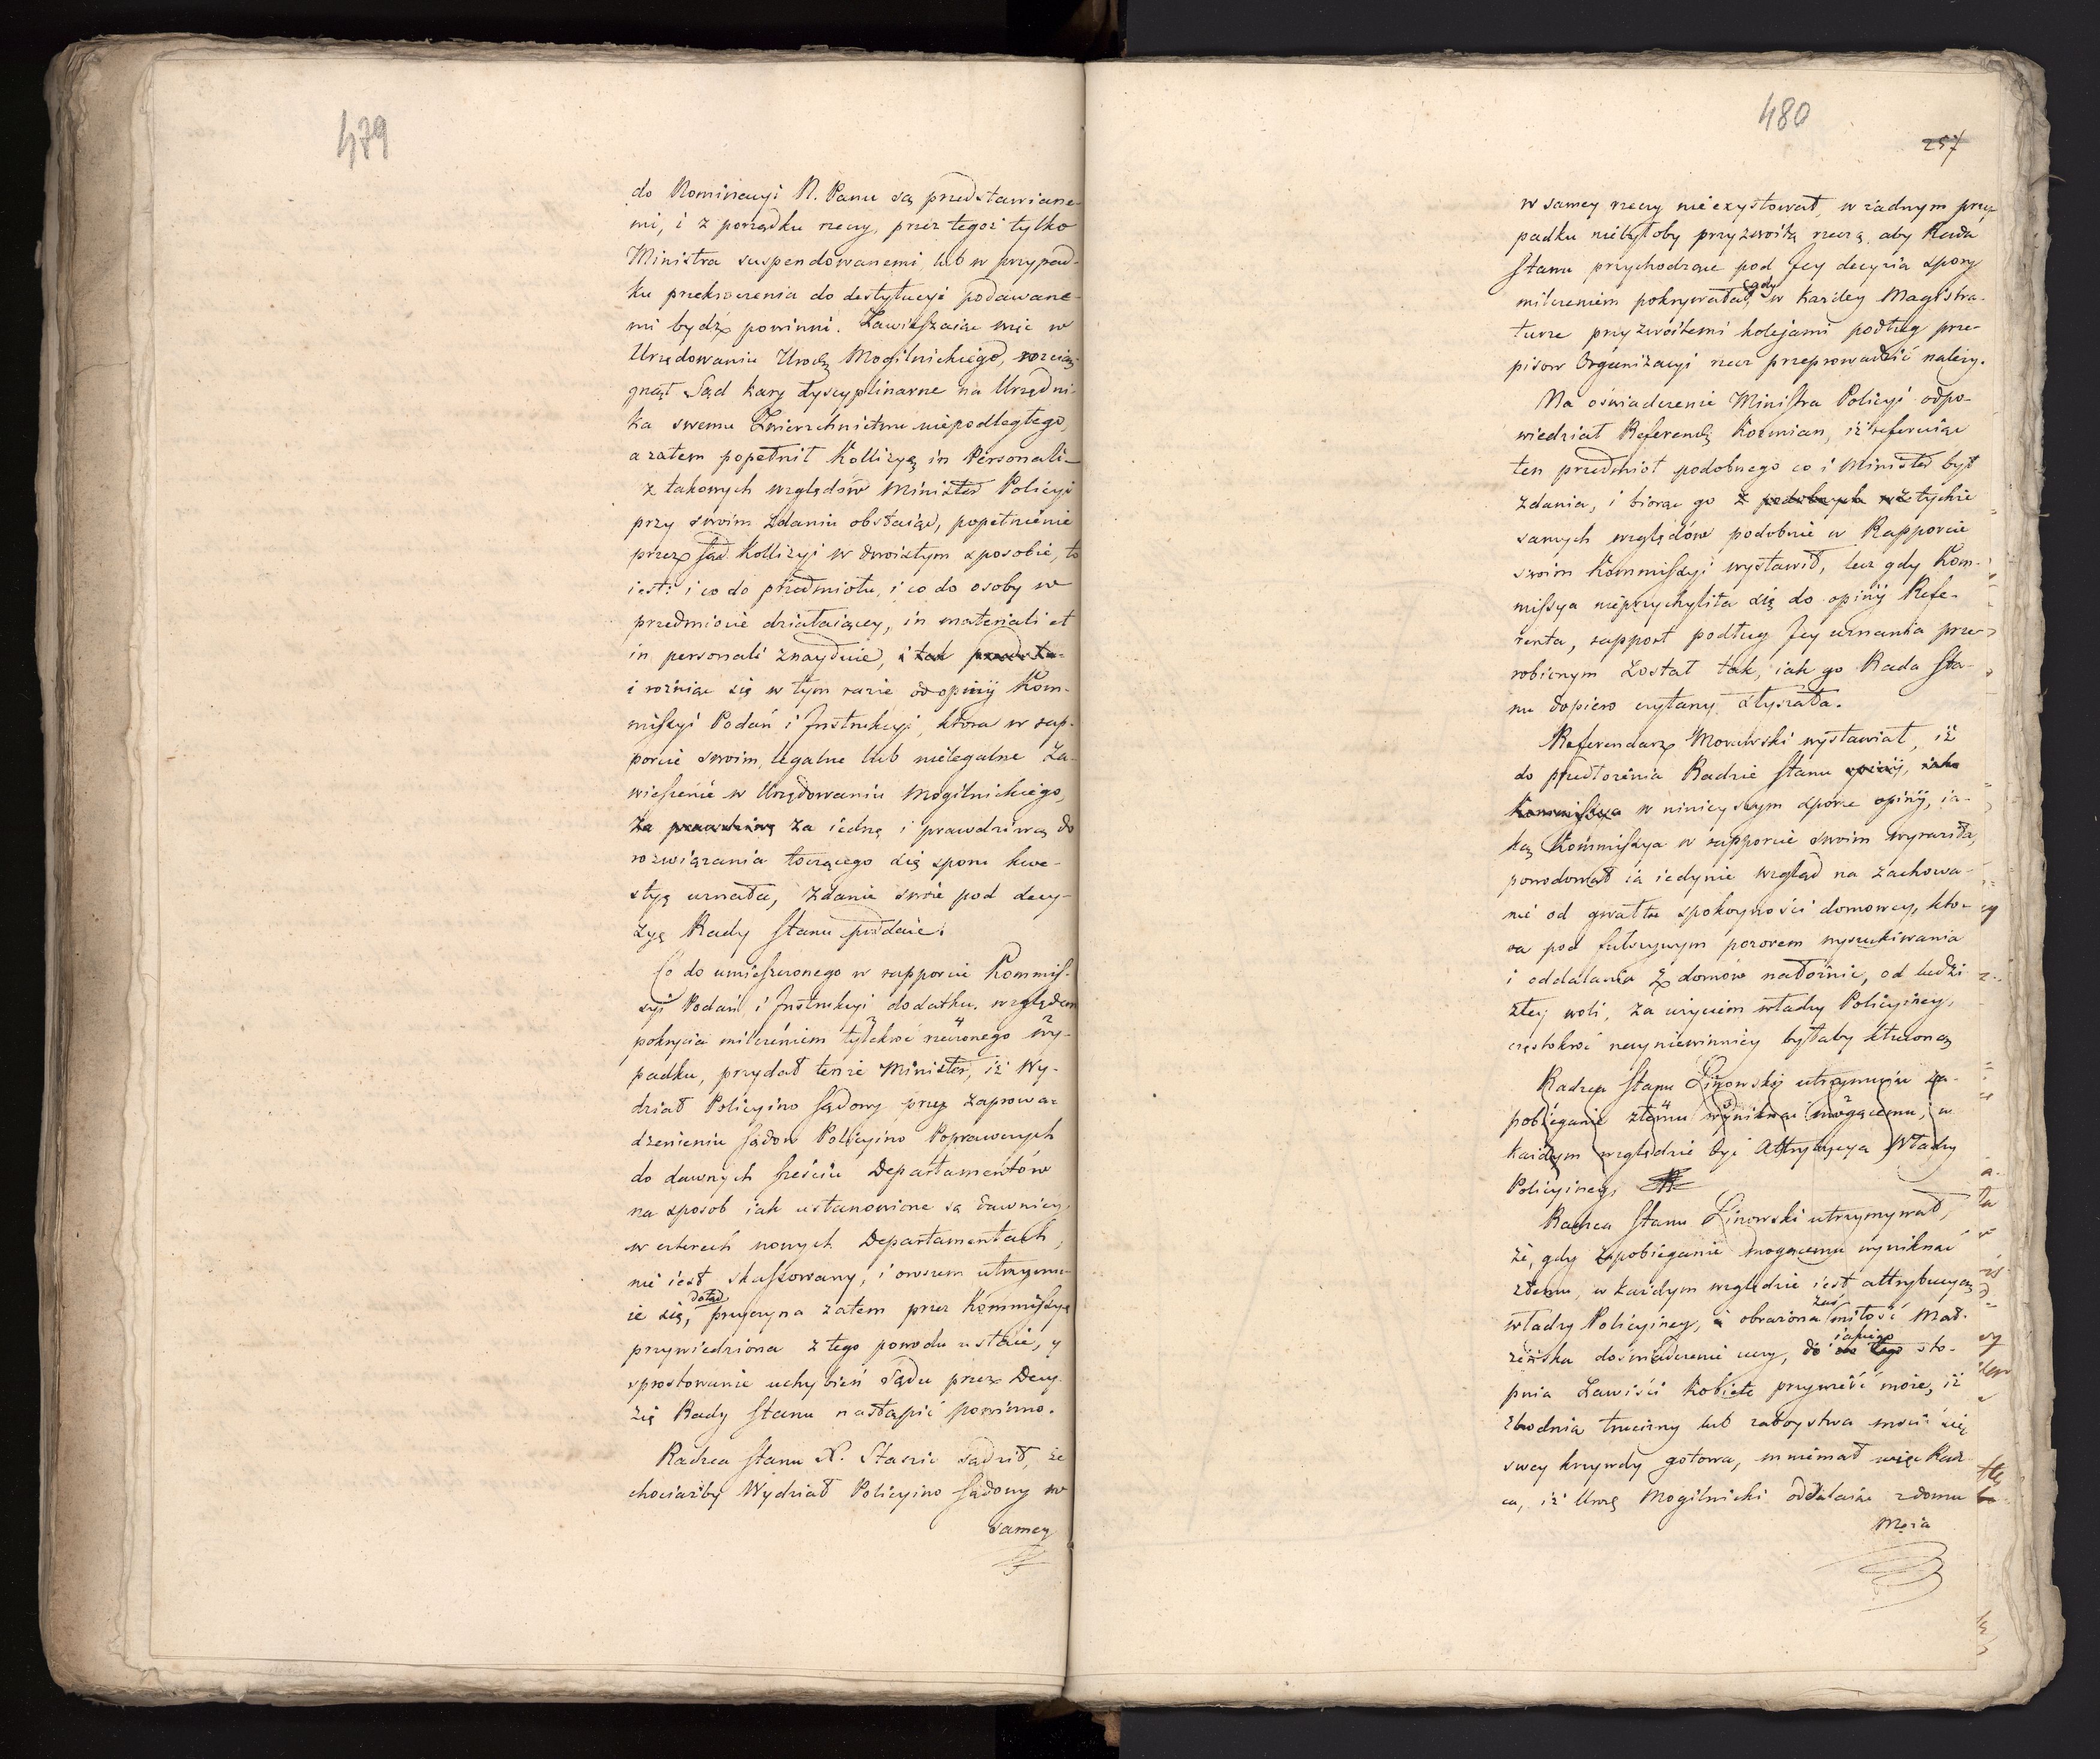 479
do Nominacyi N. Panu są przedstawiane-
mi, i z porządku rzeczy, przez tegoż tylko
Ministra suspendowanemi lub w przypad-
ku przekroczenia do destytucyi podawane-
mi bydź powinni. Zawieszaiąc więc w
Urzędowaniu Urodz Mogilnickiego, rozcią-
gnął Sąd karę dyscyplinarne na Urzędni-
ka swemu Zwierzchnictwu niepodległego,
a zatem popełnił Kollizyą in Personali
z takowych względów Minister Policyi
przy swoim zdaniu obstaiąc, popełnienie
przez Sąd Kollizyi w dwoistym sposobie, to
iest: i co do przedmiotu, i co do osoby w
przedmiocie działaiącey, in materiali et
in personali znayduie, i tak
i rożniąc się w tym razie od opinij Kom-
missyi Podań i Instrukcyi, ktora w rap-
porcie swoim, legalne lub nielegalne Za-
wieszenie w Urzędowaniu Mogilnickiego,
za prawdziwą za iedną i prawdziwą do
rozwiązania toczącego się sporu kwe-
styą uznała, zdanie swoie pod decy-
zyą Rady Stanu poddaie.
Co do umieszczonego w rapporcie Kommis-
syi Podań i Instrukcyi dodatku, względem
pokrycia milczeniem tylekroć rzeczonego wy-
padku, przydał tenże Minister, iż Wy-
dział Policyino Sądowy przez zaprowa-
dzenieniu Sądow Policyino Poprawczych
do dawnych sześciu Departamentów
na sposob iak ustanowione są dawniey,
w czterech nowych Departamentach,
nie iest skassowany, i owszem utrzymu-
ie się, dotąd przyczyna zatem przez Kommissyą
przywiedziona z tego powodu ustaie, y
sprostowanie uchybień Sądu przez Decy-
zię Rady Stanu nastąpić powinno.
Radca Stanu X. Staszic sądził, że
chociażby Wydział Policyino Sądowy w
samey
480
257
w samey rzeczy nie exystował, w żadnym przy-
padku niebyłoby przyzwoitą rzeczą, aby Rada
Stanu przychodzące pod Jey decyzia spory
milczeniem pokrywała, gdy w każdey Magistra-
turze przyzwoitemi kolejami podług prze-
pisow Organizacyi rzecz przeprowadzić należy.
Na oświadczenie Ministra Policyi odpo-
wiedział Referendz Kozmian, iż referuiąc
ten przedmiot podobnego co i Minister był
zdania, i biorąc go z podobnych względów z tychże
samych względów podobnie w Rapporcie
swoim Kommissyi wystawił, lecz gdy Kom-
missya nieprzychyliła się do opinij Refe-
renta, rapport podług Jey uznania prze-
robionym został tak, iak go Rada Sta-
nu dopiero czytany słyszała.
Referendarz Morawski wystawiał, iż
do przełożenia Radzie Stanu opinij, iaką
Kommissya w ninieyszym sporze opinij, ia-
ką Kommissya w rapporcie swoim wyraziła,
powodował ią iedynie wzgląd na zachowa-
nie od gwałtu spokoyności domowey, kto-
ra pod fałszywym pozorem wyszukiwania
i oddalania z domów nałożnic, od ludzi
złey woli, za użyciem władzy Policyiney,
częstokroć nayniewinniey byłaby kłuconą
Radca Stanu Linowski utrzymuiąc za-
pobieganie złemu wyniknąc mogącemu, w
każdym względzie być Attrybucya Władzy
Policyiney,
Radca Stanu Linowski utrzymywał,
że, gdy zapobieganie mogącemu wyniknąć
złemu, w każdym względzie iest attrybucyą
władzy Policyiney, a obrażona zaś miłość Mał-
żeńska doświadczenie uczy, do iakiego sto-
pnia Zawiści Kobietę przywieść może, iż
zbrodnia trucizny lub zaboystwa mści się
swey krzywdy gotowa, mniemał więc Rad-
ca, iż Urodz Mogilnicki oddalaiąc z domu
Męża